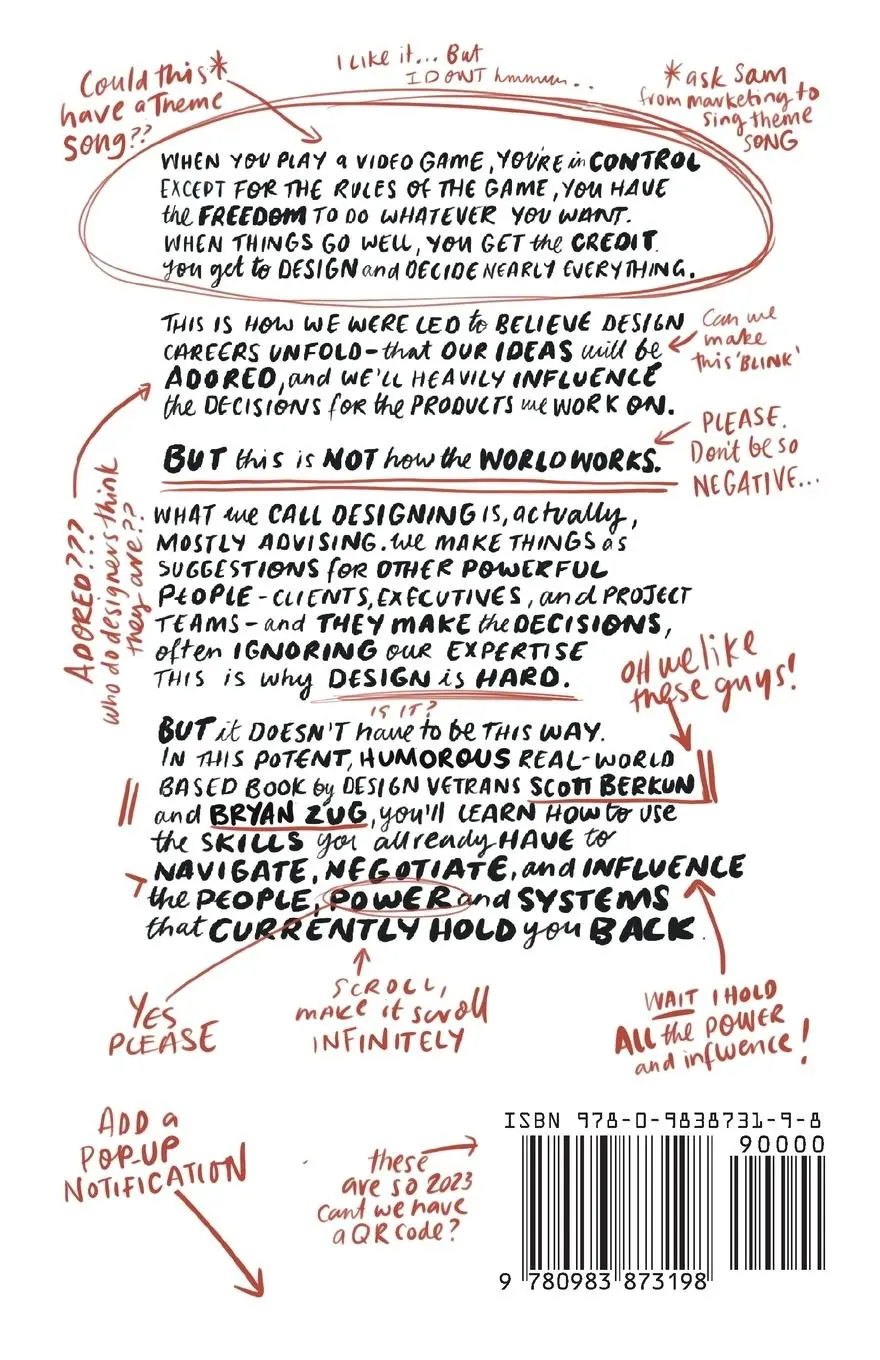 Could this*
have a Theme
SONG??
I like it... But
I DON'T hmmmm...
*ask Sam
from marketing to
sing theme
SONG
WHEN YOU PLAY a VIDEO GAME, YOU'RE in CONTROL
EXCEPT FOR THE RULES OF THE GAME, YOU HAVE
the FREEDOM TO DO WHATEVER YOU WANT.
WHEN THINGS GO WELL, YOU GET the CREDIT.
You get to DESIGN and DECIDE NEARLY EVERYTHING.
THIS IS HOW WE WERE LED to BELIEVE DESIGN
CAREERS UNFOLD - that OUR IDEAS will be
ADORED, and WE'LL HEAVILY INFLUENCE
the DECISIONS for the PRODUCTS we WORK ON.
Can we
make
this 'BLINK'
BUT this is NOT how the WORLD WORKS.
PLEASE.
Don't be so
NEGATIVE...
ADORED???
who do designers think
they are??
WHAT we CALL DESIGNING IS, actually,
MOSTLY ADVISING. We MAKE THINGS as
SUGGESTIONS for OTHER POWERFUL
PEOPLE - CLIENTS, EXECUTIVES, and PROJECT
TEAMS - and THEY MAKE the DECISIONS,
often IGNORING our EXPERTISE
THIS is why DESIGN is HARD.
IS IT?
OH we like
these guys!
BUT it DOESN'T have to be THIS WAY.
IN THIS POTENT, HUMOROUS REAL-WORLD
BASED BOOK by DESIGN VETRANS SCOTT BERKUN
and BRYAN ZUG, you'll LEARN HOW to USE
the SKILLS you allready HAVE to
NAVIGATE, NEGOTIATE, and INFLUENCE
the PEOPLE, POWER and SYSTEMS
that CURRENTLY HOLD you BACK.
YES
PLEASE
SCROLL,
make it scroll
INFINITELY
WAIT I HOLD
ALL the POWER
and influence!
ADD a
POP-UP
NOTIFICATION
these
are so 2023
Cant we have
a QR code?
ISBN 978-0-9838731-9-8
90000
9 780983 873198